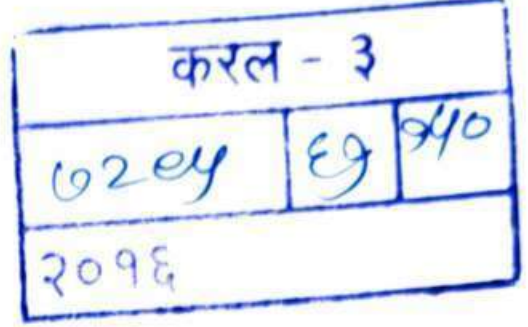 करल - ३
७२९५ ६१ १५०
२०१६